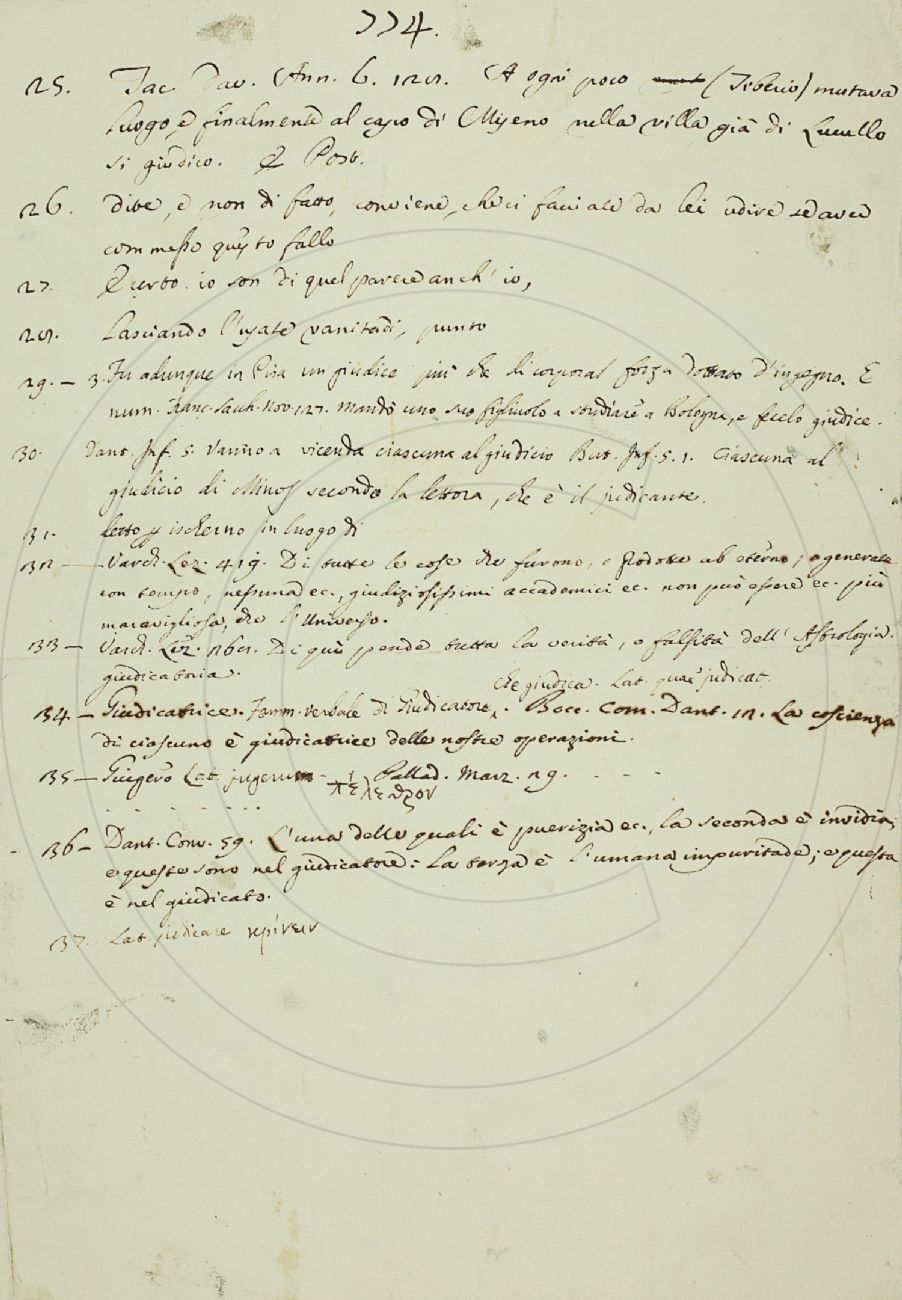 774.
25. Tac. Dav. Ann. 6. 128. A ogni poco (Tiberio) mutava
luogo, e finalmente al capo di Miseno nella villa già di Lucullo
si giudico. E Post.
26. dite, e non di fatto, conviene, che ci facciate da lei udire se avea
commesso questo fallo
27. E certo io son di quel parere anch' io,
28. Lasciando l'usate vanitadi, punto
29. — 3. Fu adunque in Pisa un giudice più che di corporal forza dottato d'ingegno. E
num. Franc. Sacch. Nov. 127. Mandò uno suo figliuolo a studiare a Bologna, e fecelo giudice.
30. Dant. Inf. 5. Vanno a vicenda ciascuna al giudicio But. Inf. 5. 1. Ciascuna al
giudicio di Minos secondo la lettera, che è il judicante.
31. detto p ischerno in luogo di
32 — Varch. Lez. 419. Di tutte le cose che furono, o prodotte ab eterno, o generate
con tempo, nessuna ec., giudiziosissimi accademici ec. non può essere ec. più
maravigliosa, che l'Universo.
33 — Varch. Lez. 268. Di quì pende tutta la verità, o falsità dell' Astrologia
giudicatoria.
che giudica. Lat. quae judicat.
34 — Giudicatrice. Femm. verbale di Giudicatore. Bocc. Com. Dant. 12. La coscienza
di ciascuno è giudicatrice delle nostre operazioni.
35 — Giugero Lat. jugerum - πέλεθρον Pallad. Marz. 29. - - -
. . . . . . . .
36 — Dant. Conv. 59. L'una delle quali è puerizia ec., la seconda è invidia,
e queste sono nel giudicatore: La terza è l'umana impuritade; e questa
è nel giudicato.
37. Lat. judicare κρίνειν